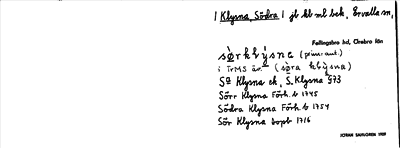 1 Klysna, Södra 1 jb kb ml bek, Ervalla sn,
Fellingsbro hd, Örebro län
(prim. acc.)
i TrMS är (
Sa Klysna ek, S. Klysna §73
Sörr Klysna Förh. b 1745
Södra Klysna Förh. b 1754
Sör Klysna bopb 1716
JÖRAN SAHLGREN 1925